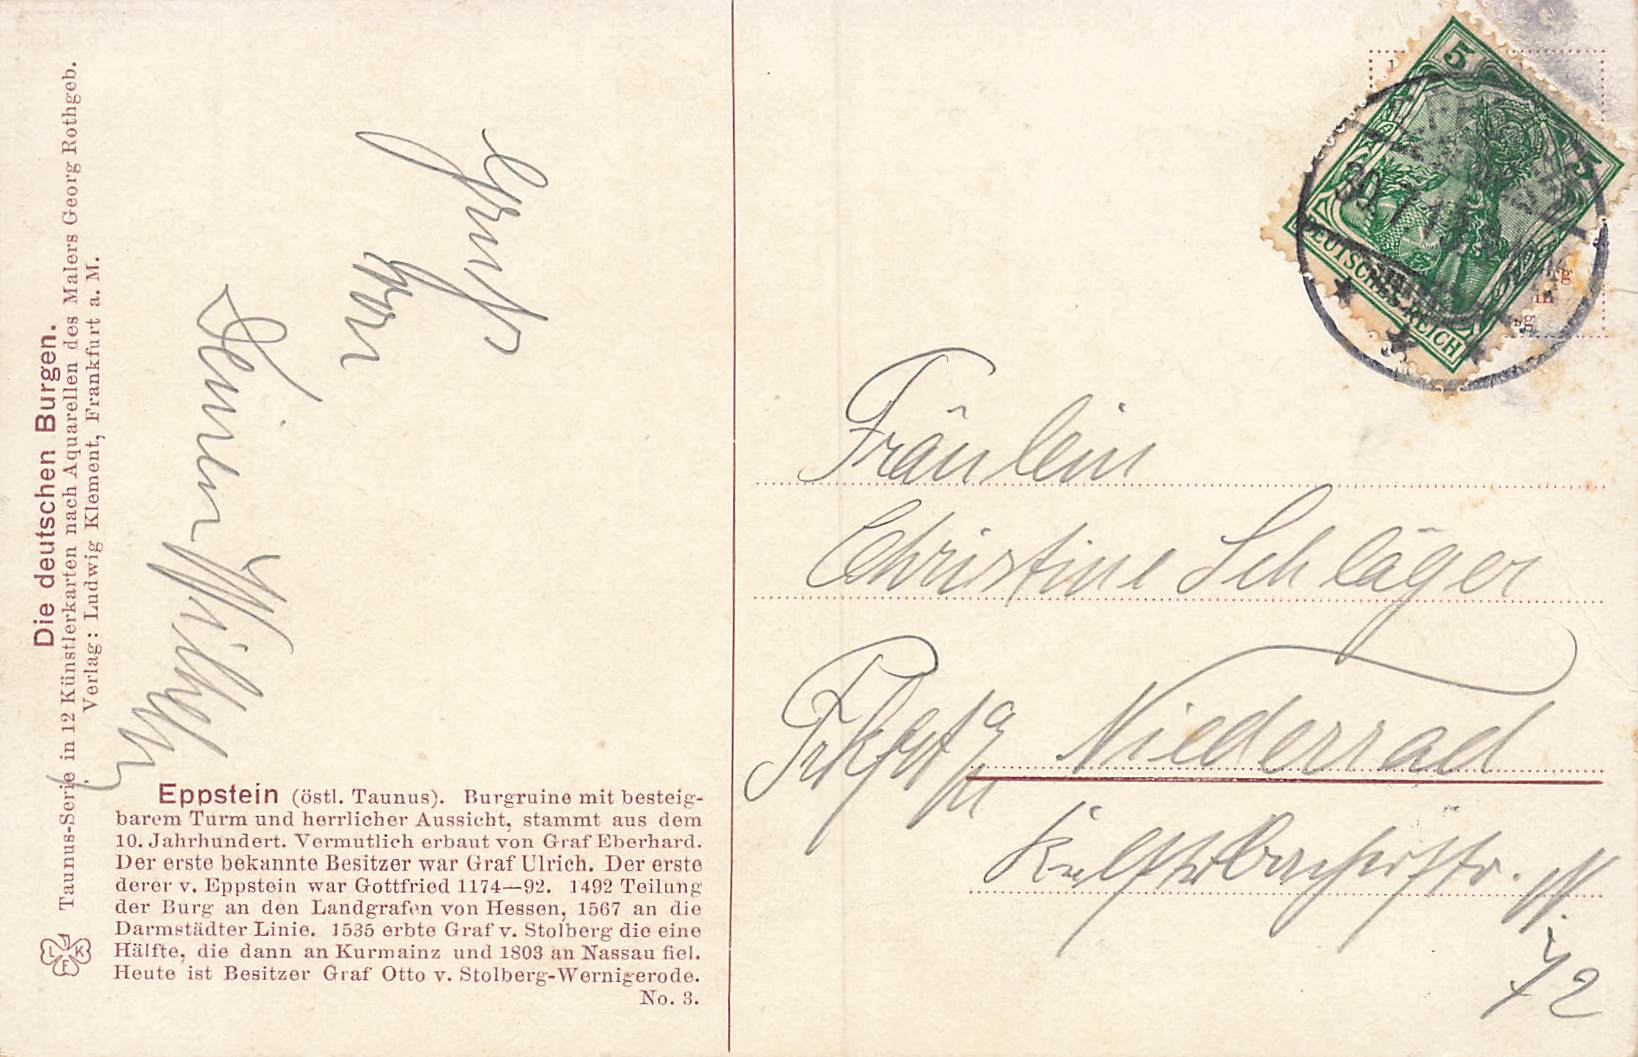 Die deutschen Burgen.
Taunus-Serie in 12 Künstlerkarten nach Aquarellen des Malers Georg Rothgeb.
Verlag: Ludwig Klement, Frankfurt a. M.
Gruß
von
Deinem Wilhelm
Eppstein (östl. Taunus). Burgruine mit besteig-
barem Turm und herrlicher Aussicht, stammt aus dem
10. Jahrhundert. Vermutlich erbaut von Graf Eberhard.
Der erste bekannte Besitzer war Graf Ulrich. Der erste
derer v. Eppstein war Gottfried 1174—92. 1492 Teilung
der Burg an den Landgrafen von Hessen, 1567 an die
Darmstädter Linie. 1535 erbte Graf v. Stolberg die eine
Hälfte, die dann an Kurmainz und 1803 an Nassau fiel.
Heute ist Besitzer Graf Otto v. Stolberg-Wernigerode.
No. 3.
5 5
DEUTSCHES REICH
Fräulein
Christine Schläger
Frkft a/M Niederrad
Kelsterbacherstr. N
72